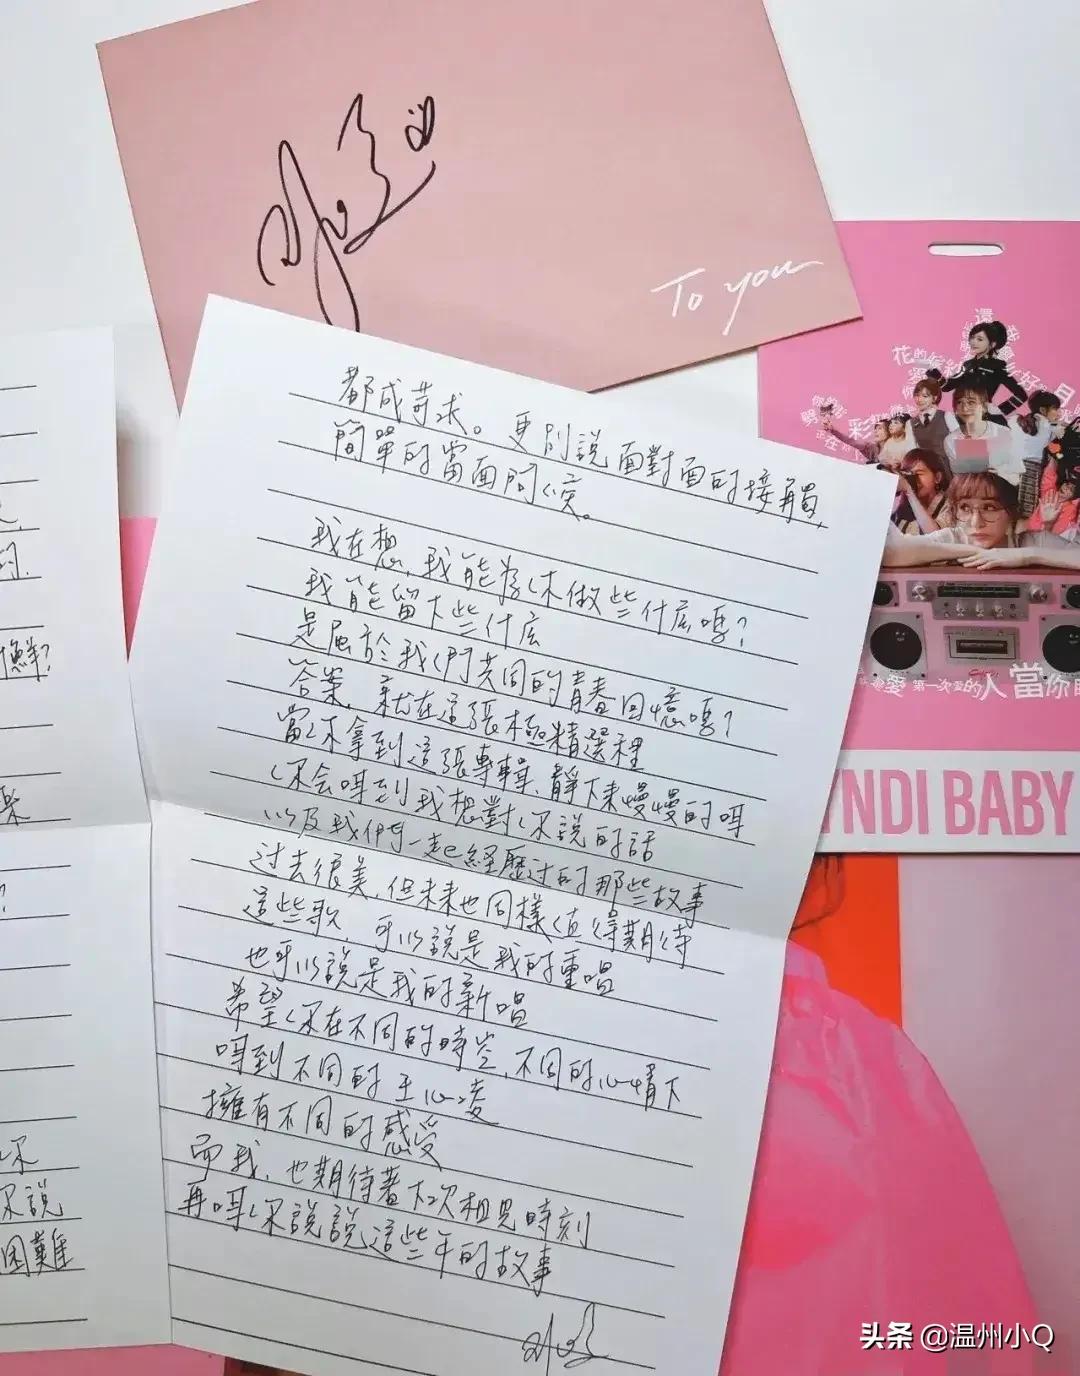 To you
都成苛求。更別說面對面的接觸,
簡單的當面問候。
我在想,我能為你做些什麼嗎?
我能留下些什麼
是屬於我們共同的青春回憶嗎?
答案,就在這張極精選裡
當你拿到這張專輯,靜下來慢慢的听
你会听到我想對你說的話
以及我們一起經歷过的那些故事
过去很美,但未來也同樣值得期待
這些歌,可以說是我的重唱
也可以說是我的新唱
希望你在不同的時空,不同的心情下
听到不同的王心凌
擁有不同的感受
而我,也期待著下次相見時刻
再听你說說這些年的故事
你
你說
困難
還
花的
彩虹的微
愛 第一次愛的人 當你
YNDI BABY
头条 @温州小Q